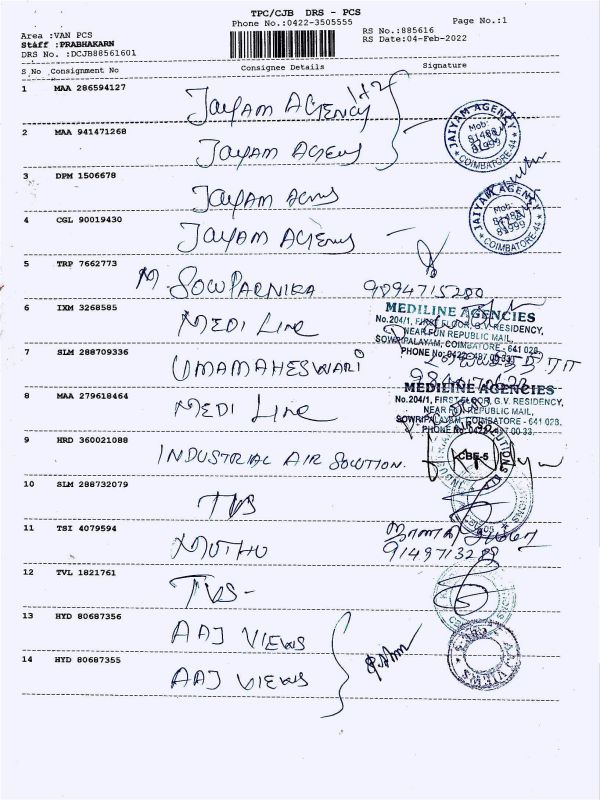 TPC/CJB DRS - PCS
Phone No.:0422-3505555
Page No.:1
Area :VAN PCS
RS No.:885616
Staff :PRABHAKARN
RS Date:04-Feb-2022
DRS No. :DCJB88561601
S_No Consignment No Consignee Details Signature
1 MAA 286594127 JAIYAM AGENCY
JAIYAM AGENCY
Mob:
COIMBATORE-44
2 MAA 941471268 JAIYAM AGENCY
3 DPM 1506678 JAIYAM
4 CGL 90019430 JAIYAM AGENCY
JAIYAM AGENCY
Mob:
COIMBATORE-44
5 TRP 7662773 M. SOWPARNIKA 9094715280
6 IXM 3268585 MEDI LINE
MEDILINE AGENCIES
No.204/1, FIRST FLOOR, G.V. RESIDENCY,
NEAR FUN REPUBLIC MAIL,
SOWRIPALAYAM, COIMBATORE - 641 028.
PHONE No: 0422-497 00 33
7 SLM 288709336 UMAMAHESWARI
8 MAA 279618464 MEDI LINE
MEDILINE AGENCIES
No.204/1, FIRST FLOOR, G.V. RESIDENCY,
NEAR FUN REPUBLIC MAIL,
SOWRIPALAYAM, COIMBATORE - 641 028.
PHONE No: 0422-497 00 33
9 HRD 360021088 INDUSTRIAL AIR SOLUTION.
CBE-5
10 SLM 288732079 TVS
11 TSI 4079594 MUTHU
12 TVL 1821761 TVS-
13 HYD 80687356 AAJ VIEWS
14 HYD 80687355 AAJ VIEWS
AAJ VIEWS